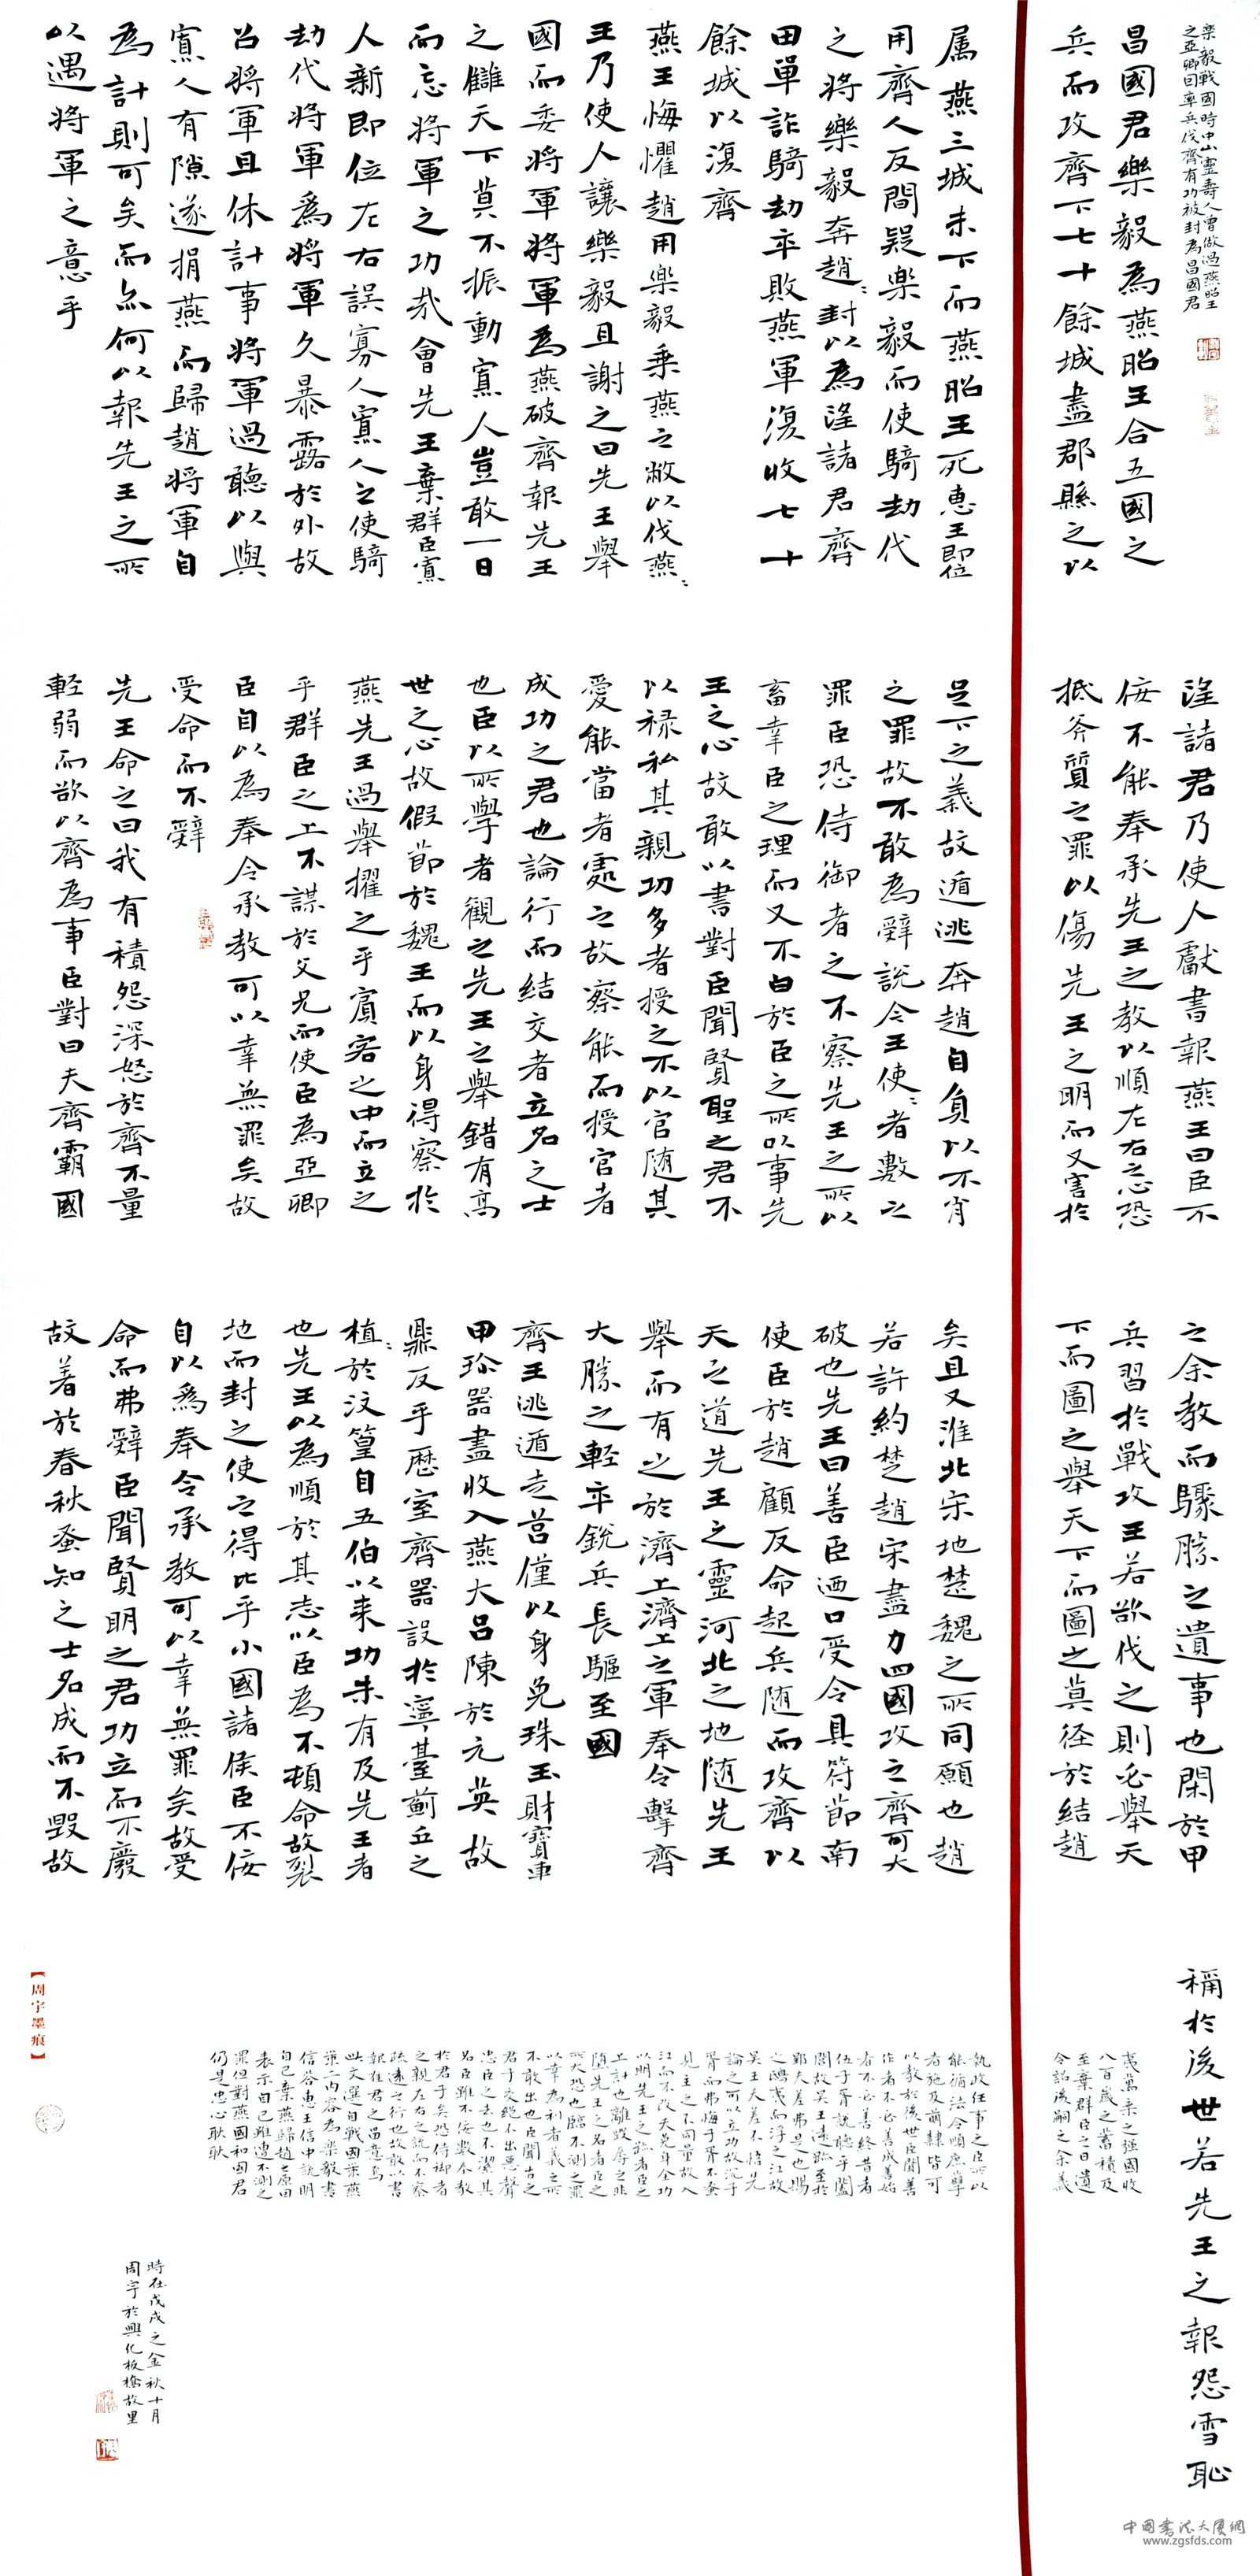 樂毅戰國時中山靈壽人曾做過燕昭王
之亞卿因率兵伐齊有功被封為昌國君
昌國君樂毅為燕昭王合五國之
兵而攻齊下七十餘城盡郡縣之以
属燕三城未下而燕昭王死惠王即位
用齊人反間疑樂毅而使騎劫代
之將樂毅奔趙〻封以為望諸君齊
田單詐騎劫卒敗燕軍復收七十
餘城以復齊
燕王悔懼趙用樂毅乘燕之敝以伐燕〻
王乃使人讓樂毅且謝之曰先王舉
國而委將軍將軍為燕破齊報先王
之讎天下莫不振動寡人豈敢一日
而忘將軍之功哉會先王棄群臣寡
人新即位左右誤寡人寡人之使騎
劫代將軍為將軍久暴露於外故
召將軍且休計事將軍過聽以與
寡人有隙遂捐燕而歸趙將軍自
為計則可矣而亦何以報先王之所
以遇將軍之意乎
望諸君乃使人獻書報燕王曰臣不
佞不能奉承先王之教以順左右之心恐
抵斧質之罪以傷先王之明而又害於
足下之義故遁逃奔趙自負以不肖
之罪故不敢為辭說今王使〻者數之
罪臣恐侍御者之不察先王之所以
畜幸臣之理而又不白於臣之所以事先
王之心故敢以書對臣聞賢聖之君不
以禄私其親功多者授之不以官随其
愛能當者處之故察能而授官者
成功之君也論行而結交者立名之士
也臣以所學者觀之先王之舉錯有高
世之心故假節於魏王而以身得察於
燕先王過舉擢之乎賓客之中而立之
乎群臣之上不謀於父兄而使臣為亞卿
臣自以為奉令承教可以幸無罪矣故
受命而不辭
先王命之曰我有積怨深怒於齊不量
輕弱而欲以齊為事臣對曰夫齊霸國
之余教而驟勝之遺事也閑於甲
兵習於戰攻王若欲伐之則必舉天
下而圖之舉天下而圖之莫徑於結趙
矣且又淮北宋地楚魏之所同願也趙
若許約楚趙宋盡力四國攻之齊可大
破也先王曰善臣迺口受令具符節南
使臣於趙顧反命起兵随而攻齊以
天之道先王之靈河北之地随先王
舉而有之於濟上濟上之軍奉令擊齊
大勝之輕卒銳兵長驅至國
齊王逃遁走莒僅以身免珠玉財寶車
甲珍器盡收入燕大吕陳於元英故
鼎反乎歷室齊器設於寧臺薊丘之
植〻於汶篁自五伯以来功未有及先王者
也先王以為順於其志以臣為不頓命故裂
地而封之使之得比乎小國諸侯臣不佞
自以為奉令承教可以幸無罪矣故受
命而弗辭臣聞賢明之君功立而不廢
故著於春秋蚤知之士名成而不毀故
稱於後世若先王之報怨雪恥
夷萬乘之强國收
八百歲之蓄積及
至棄群臣之日遺
令詔後嗣之余義
執政任事之臣所以
能循法令順庶孽
者施及萌隸皆可
以教於後世臣聞善
作者不必善成善始
者不必善終昔者
伍子胥說聽乎闔
閭故吴王遠跡至於
郢夫差弗是也賜
之鴟夷而浮之江故
吴王夫差不悟先
論之可以立功故沉子
胥而弗悔子胥不蚤
見主之不同量故入
江而不改夫免身全功
以明先王之跡者臣之
上計也離毀辱之非
墮先王之名者臣之
所大恐也臨不測之罪
以幸為利者義之所
不敢出也臣聞古之
君子交絕不出惡聲
忠臣之去也不潔其
名臣雖不佞數奉教
於君子矣恐侍御者
之親左右之說而不察
疏遠之行也故敢以書
報唯君之留意焉
此文選自戰國策燕
策二内容為樂毅書
信答惠王信中說明
自己棄燕歸趙之原因
表示自己雖遭不測之
罪但對燕國和國君
仍是忠心耿耿
時在戊戌之金秋十月
周宇於興化板橋故里
【周宇墨痕】
中國書法大厦網
www.zgsfds.com